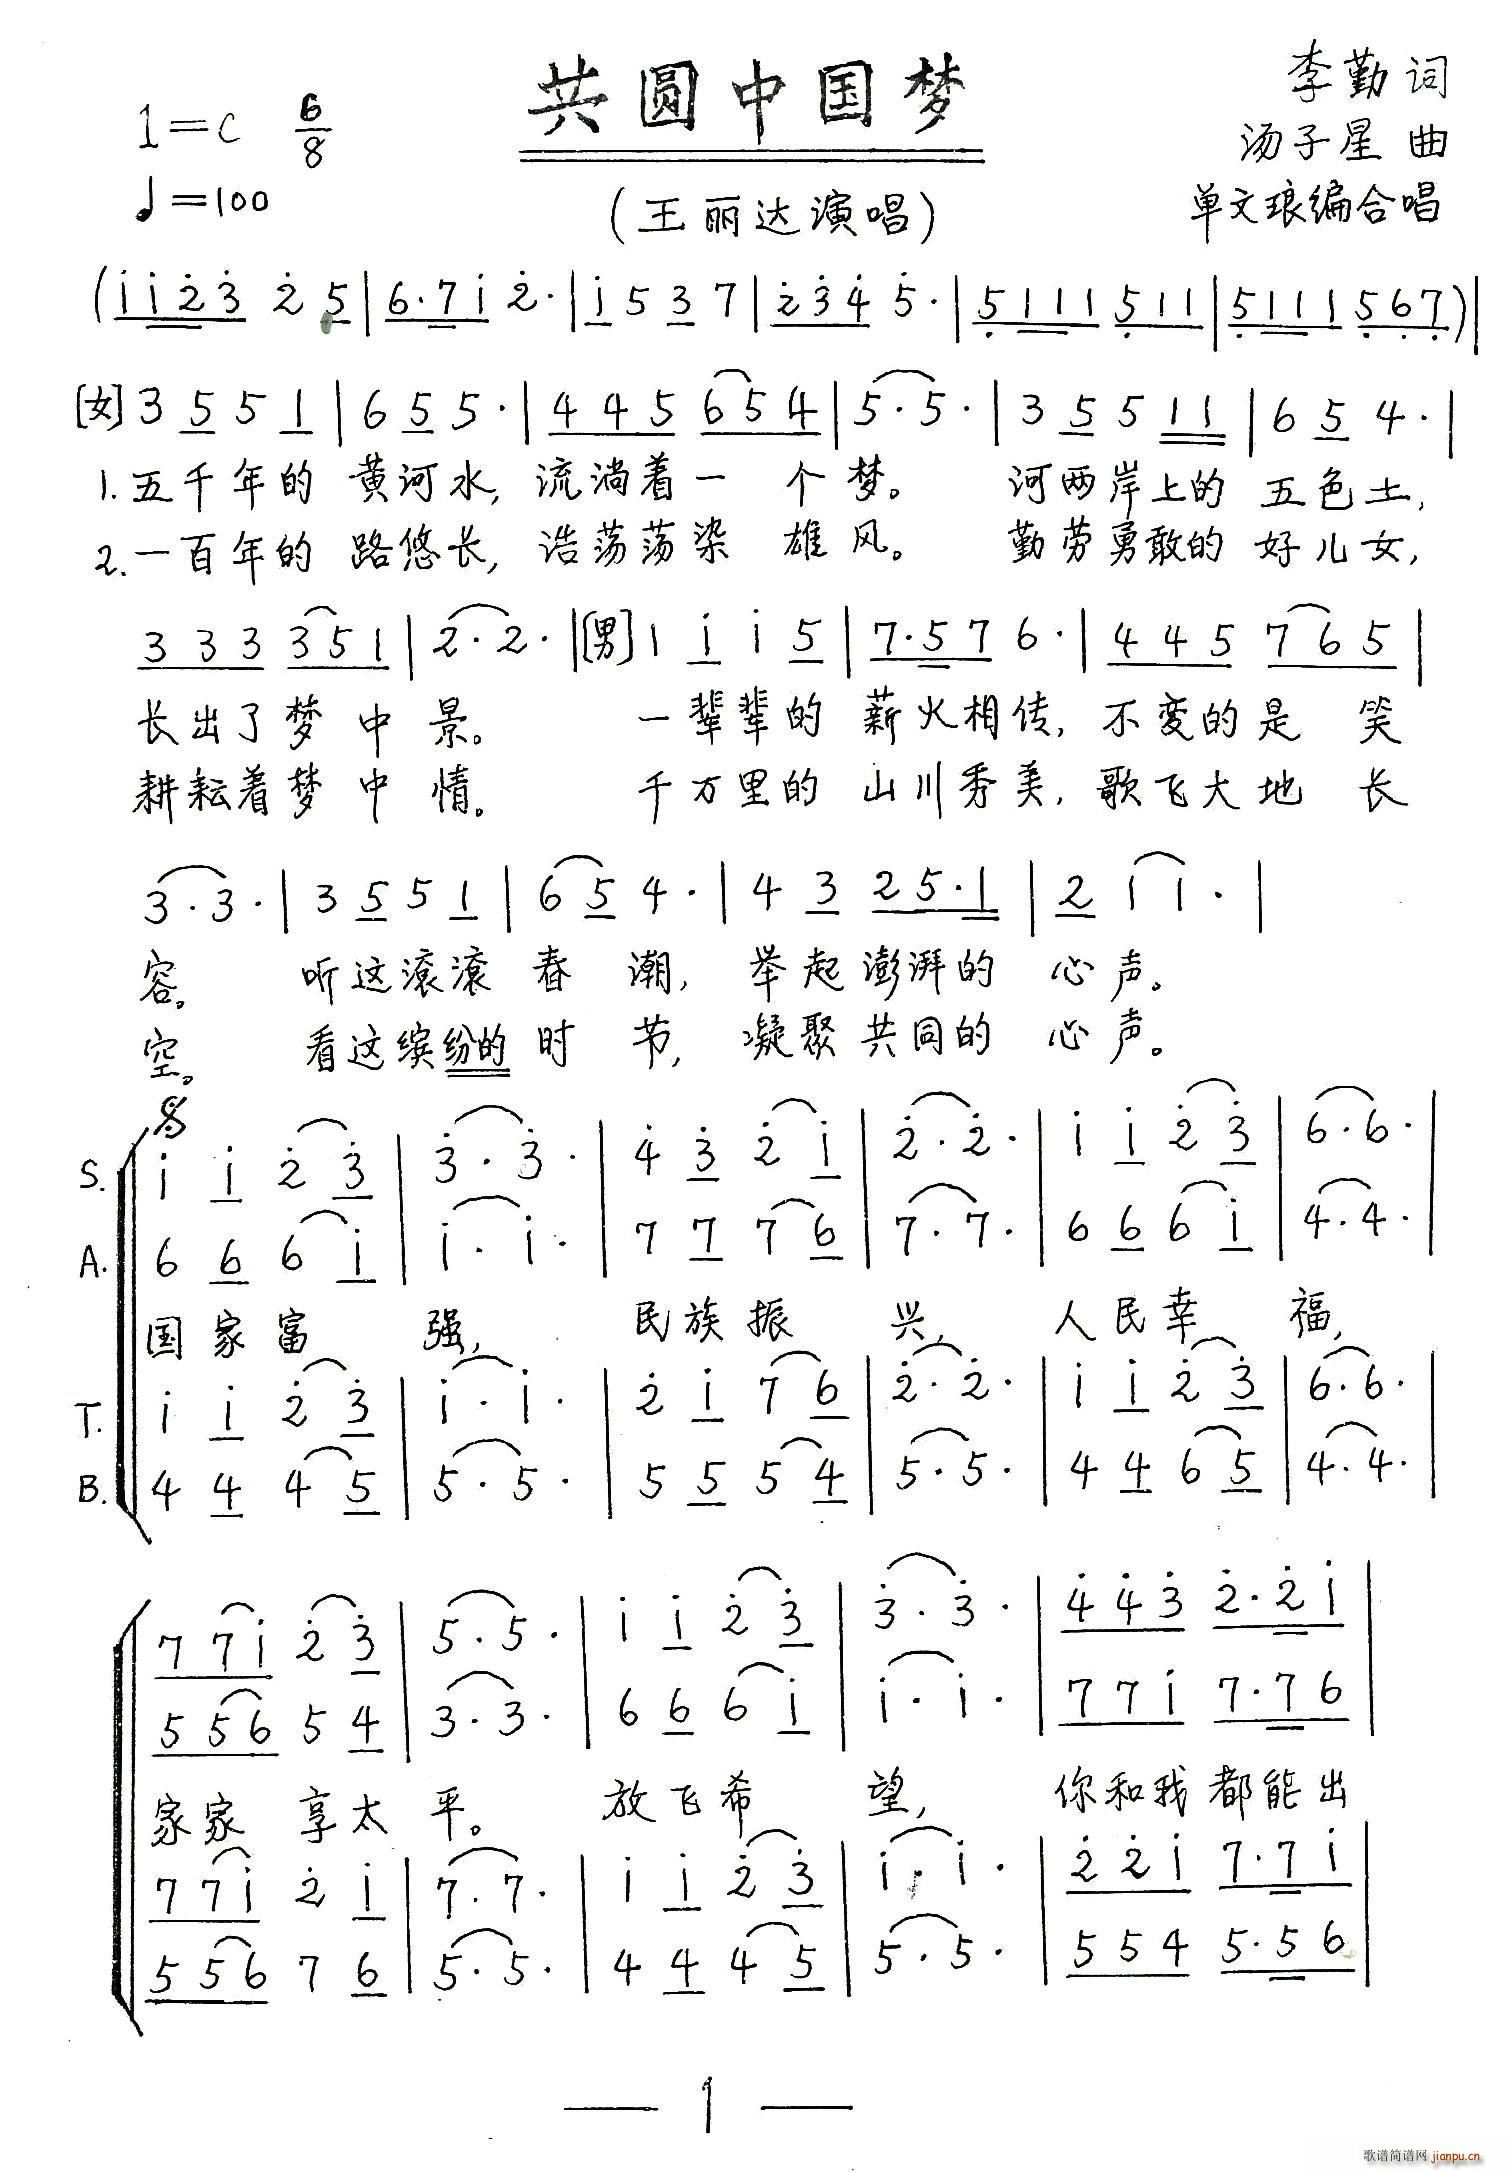 共圆中国梦
李勤词
1=C 6/8
汤子星 曲
♩=100
(王丽达演唱)
单文琅编合唱
(i i 2̇ 3̇ 2̇ 5|6·7 i 2̇·|i 5 3 7|2̇ 3̇ 4̇ 5̇·|5̣ 1 1 1 5̣ 1 1|5̣ 1 1 1 5̣ 6̣ 7̣)|
[女] 3 5 5 1|6 5 5·|4 4 5 6 5 4|5·5·|3 5 5 1 1|6 5 4·|
1. 五千年的 黄河水, 流淌着一 个 梦。 河两岸上的 五色土,
2. 一百年的 路悠长, 浩荡荡染 雄风。 勤劳勇敢的 好儿女,
3 3 3 3 5 1|2·2·|[男] 1 i i 5|7·5 7 6·|4 4 5 7 6 5|
长出了梦 中 景。 一辈辈的 薪火相传, 不变的是 笑
耕耘着梦 中 情。 千万里的 山川秀美, 歌飞大地 长
3·3·|3 5 5 1|6 5 4·|4 3 2 5·1|2 1 1·|
容。 听这滚滚 春 潮, 举起澎湃的 心声。
空。 看这缤纷的 时 节, 凝聚共同的 心声。
S. i i 2̇ 3̇|3̇·3̇·|4̇ 3̇ 2̇ i|2̇·2̇·|i i 2̇ 3̇|6·6·|
A. 6 6 6 i|i·i·|7 7 7 6|7·7·|6 6 6 i|4·4·|
国家富 强, 民族振 兴, 人民幸 福,
T. i i 2̇ 3̇|i·i·|2̇ i 7 6|2̇·2̇·|i i 2̇ 3̇|6·6·|
B. 4 4 4 5|5·5·|5 5 5 4|5·5·|4 4 6 5|4·4·|
7 7 i 2̇ 3̇|5·5·|i i 2̇ 3̇|3̇·3̇·|4̇ 4̇ 3̇ 2̇·2̇ i|
5 5 6 5 4|3·3·|6 6 6 i|i·i·|7 7 i 7·7 6|
家家 享太 平。 放飞希 望, 你和我都能出
7 7 i 2̇ i|7·7·|i i 2̇ 3̇|i·i·|2̇ 2̇ i 7·7 i|
5 5 6 7 6|5·5·|4 4 4 5|5·5·|5 5 4 5·5 6|
— 1 —
歌谱简谱网 jianpu.cn